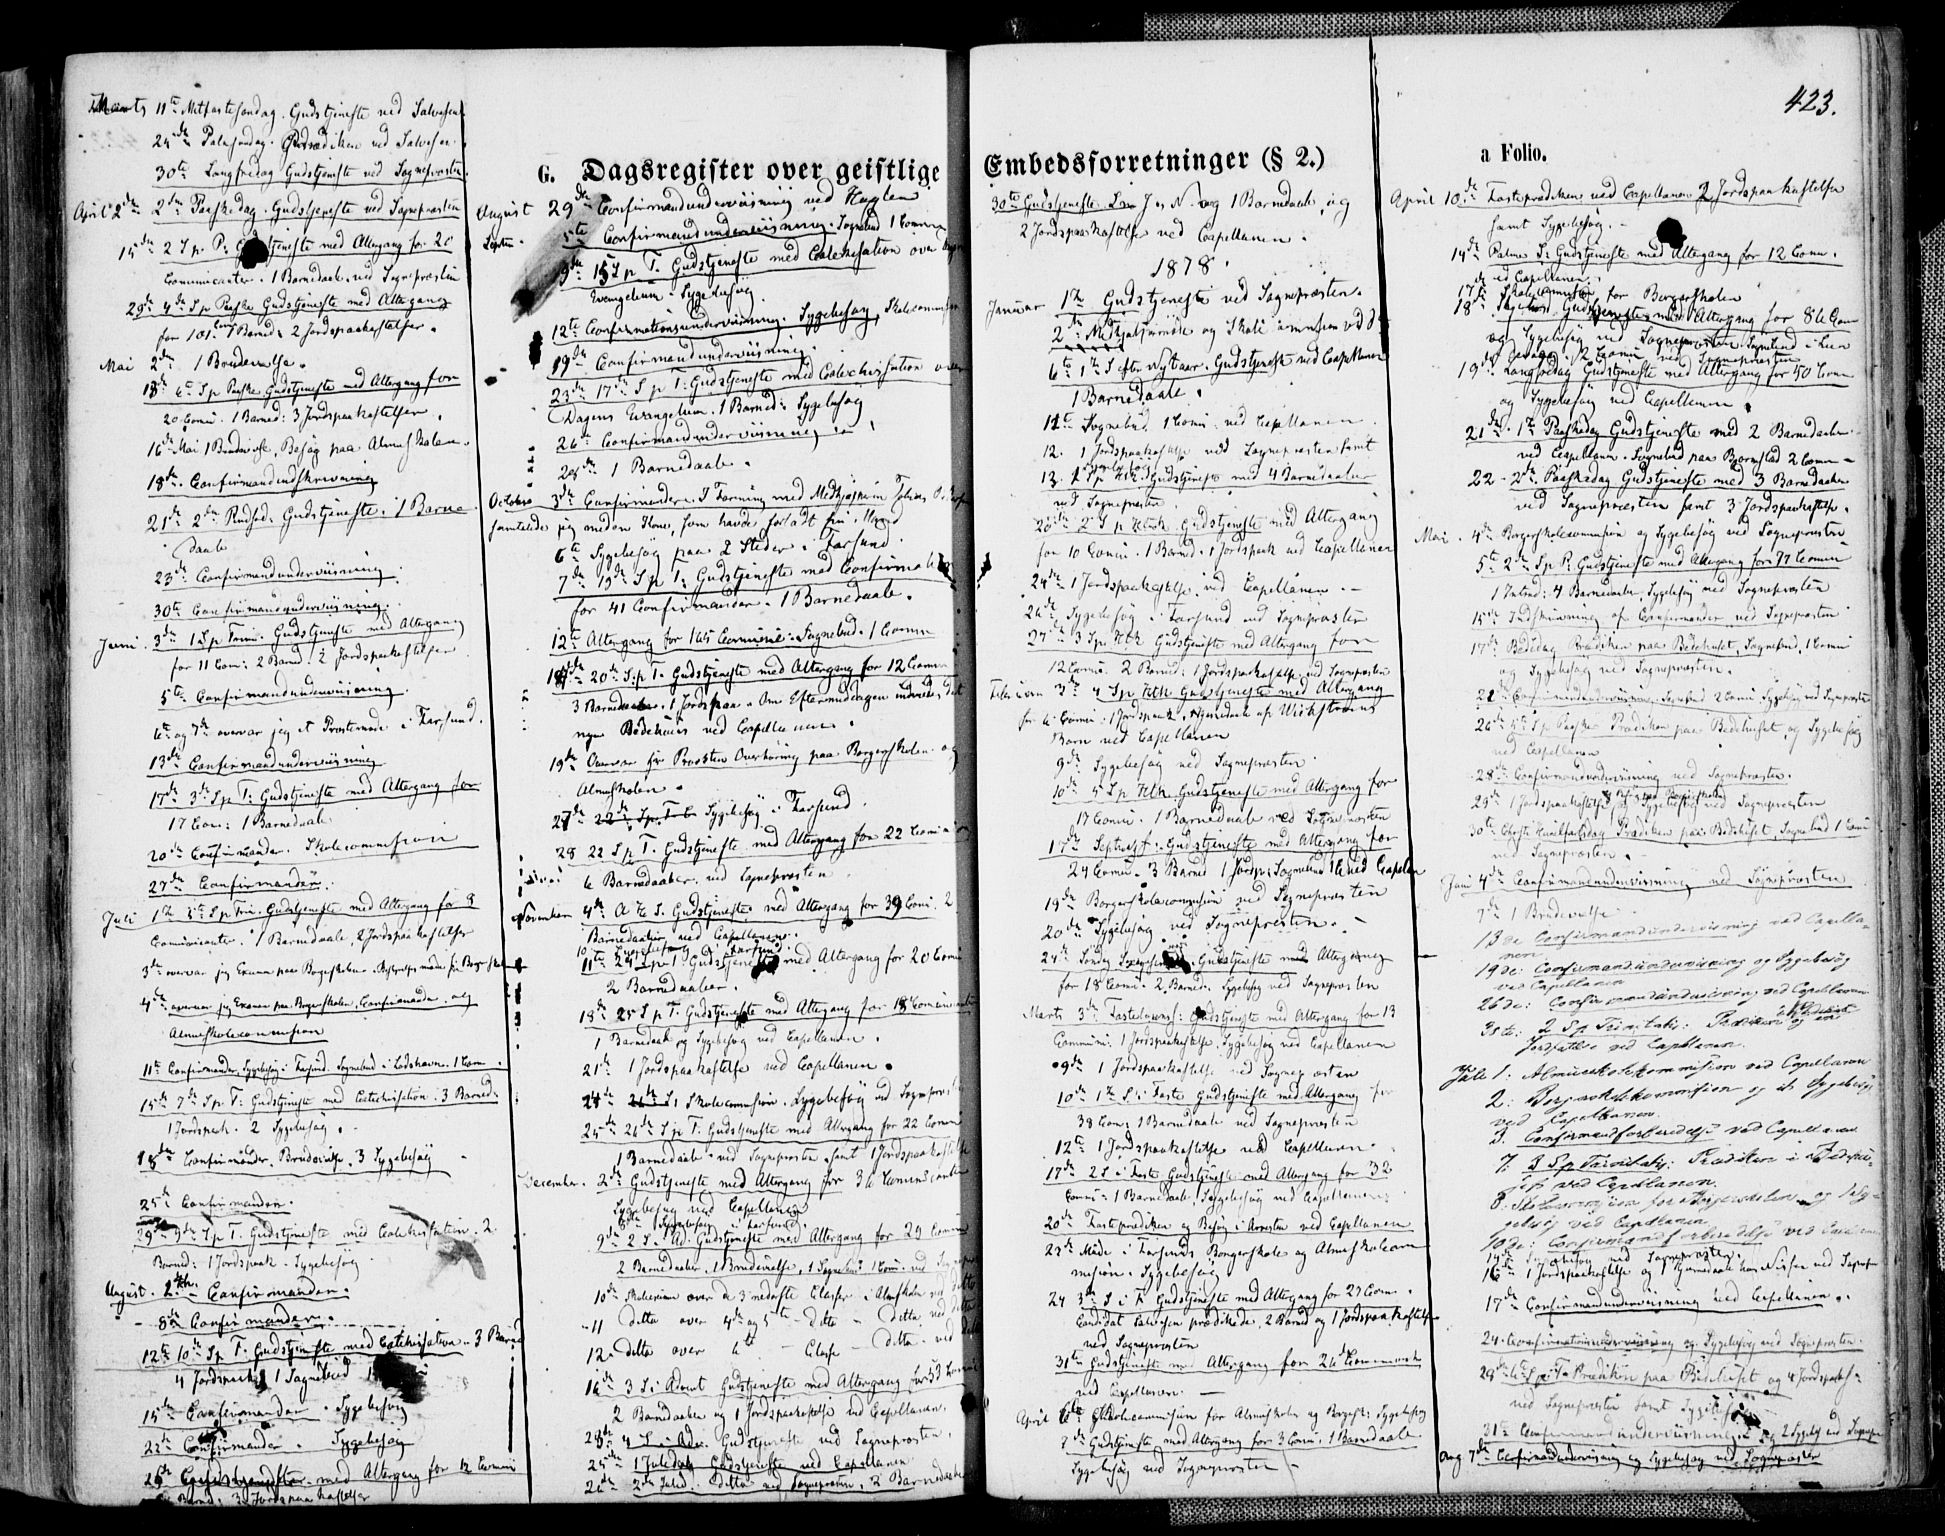 423.
G. Dagsregister over geistlige Embedsforretninger (§ 2.) a Folio.
Marts 11te Midfastesøndag. Gudstjeneste ved Salvesen
24de Palmesøndag. Prædiken ved Salvesen.
30te Langfredag Gudstjeneste ved Sognepræsten
April 2de 2den Paaskedag. Gudstjeneste ved Sognepræsten
15de 2 S. p. P. Gudstjeneste med Altergang for 20
Communicanter. 1 Barnedaab ved Sognepræsten
29de 4de S p Paaske Gudstjeneste med Altergang
2 Jordspaakastelser.
Mai 2de 1 Brudevielse.
13de 6te S p Paaske. Gudstjeneste med Altergang for
20 Comm. 1 Barned: 3 Jordspaakastelser.
16de Mai 1 Brudevielse, Besøg paa Almueskolen.
18de Confirmandindskrivning
21de 2den Pindsed. Gudstjeneste. 1 Barne
daab
23de Confirmandunderviisning
30te Confirmandunderviisning.
Juni. 3de 1 S p Trin. Gudstjeneste med Altergang
for 11 Com: 2 Barned. 2 Jordspaakastelser
5te Confirmandunderviisning.
6te og 7de overvar jeg et Præstemøde i Farsund.
13de Confirmandunderviisning
17de 3de S p T: Gudstjeneste med Altergang for
17 Com: 1 Barnedaab
20de Confirmander. Skolecommission
27de Confirmander.
Juli 1te 5te S p Trin. Gudstjeneste med Altergang for 8
Communicanter. 1 Barnedaab, 2 Jordspaakastelser
3de overvar jeg Examen paa Borgerskolen.
4de overvar jeg Examen paa Borgerskolen, Confirmander, og
Almueskolecommission
11te Confirmander, Sygebesøg i Farsund. Sognebud i Lodshavn. 1 Com.
15de 7de S p T: Gudstjeneste med Catechisation. 3 Barned:
1 Jordspaak. 2 Sygebesøg.
18de Confirmander. Brudevielse. 3 Sygebesøg
25de Confirmander.
29de 9de S p T. Gudstjeneste med Catechisation. 2
Barned: 1 Jordspaak. Sygebesøg.
August. 2den Confirmander.
8de Confirmander.
12te 10de S p T: Gudstjeneste med Catechisation. 3 Barned
4 Jordspaak. 1 Sognebud
15de Confirmander. Sygebesøg
22de Confirmander. Sygebesøg
26de Gudstjeneste med Altergang for 12 Comm
Barned: 3 Jordspaakastelser
August 29de Confirmandunderviisning ved
Septbr. 5te Confirmandunderviisning. Sognebud 1 Comm
9de 15 S p T. Gudstjeneste med Catechisation over
Evangelium. Sygebesøg
12te Confirmationsunderviisning. Sygebesøg, Skolecommission
19de Confirmandunderviisning.
23de 17de S p T: Gudstjeneste med Catechisation over
Dagens Evangelium. 1 Barned: Sygebesøg
26de Confirmandunderviisning
28de 1 Barnedaab.
October 3de Confirmander.
samtalede jeg med en Kone, som havde forladt sin Mand
6te Sygebesøg paa 2 Steder i Farsund.
7de 19de S p T: Gudstjeneste med Confirmation
for 41 Confirmander. 1 Barnedaab.
12te Altergang for 165 Commun. Sognebud. 1 Comm
14de 20de S. p T. Gudstjeneste med Altergang for 12 Comm
3 Barnedaab. 1 Jordspaa. Om Eftermiddagen indviedes det
nye Bedehuus ved Capellanen.
19de Overvar Hr Provsten Overhøring paa Borgerskolen og
Almueskolen.
27de Sygebesøg i Farsund.
28 22 S p T. Gudstjeneste med Altergang for 22 Comm
6 Barnedaaber. ved Sognepræsten.
November 4de A H S. Gudstjeneste med Altergang for 39 Com. 2
Barnedaaber ved Capellanen.
10 Sygebesøg i Farsund
11te 24 S p T Gudstjeneste med Altergang for 20 Comm
2 Barnedaaber.
18de 25 S p T. Gudstjeneste med Altergang for 18 Communicanter
1 Barnedaab og Sygebesøg ved Capellanen.
21de 1 Jordspaakastelse ved Capellanen.
24de Skolecommission. Sygebesøg ved Sognepræsten
25de 26de S p T: Gudstjeneste med Altergang for 22 Comm
1 Barnedaab ved Sognepræsten samt 1 Jordspaakastelse
December. 2den Gudstjeneste med Altergang for 36 Communicanter
Sygebesøg ved Capellanen
8de Sygebesøg i Farsund.
9de 2 S i Ad. Gudstjeneste med Altergang for 29 Comm
2 Barnedaaber, 1 Brudevielse, 1 Sognebud 1 Com. ved Sognepr
10de Skoleexamen over de 3 nederste Classer i Almueskolen ved ditto
11 ditto over 4de og 5te Ditto Ditto ved ditto
12. ditto over 6te Classe Ditto ved ditto
16de 3 S i Advent Gudstjeneste med Altergang for 59 Comm
2 Barnedaaber og 1 Jordspaakastelse ved Capellanen.
23de 4 S i Adv. Gudstjeneste ved Sognepræsten.
25de 1 Juledag Gudstjeneste ved Capellanen
26de 2den Juled. ditto ved Sognepræsten. 2 Barnedaaber
30te Gudstjeneste 1 Barnedaab, og
2 Jordspaakastelse ved Capellanen.
1878.
Januar 1te Gudstjeneste ved Sognepræsten.
6te 1te S efter Nytaar. Gudstjeneste ved Capellanen
1 Barnedaab.
11te Sognebud, 1 Comm. ved Capellanen.
12. 1 Jordspaakastelse ved Sognepræsten samt
13. 1 S p HtK Gudstjeneste med 4 Barnedaaber
ved Sognepræsten.
20de 2 S p HtK Gudstjeneste med Altergang
for 10 Comm. 1 Barned. 1 Jordspaak ved Capellanen
24de 1 Jordspaakastelse ved Capellanen.
26de Sygebesøg i Farsund ved Sognepræsten
27de 3 S p HtK Gudstjeneste med Altergang for
12 Comm. 2 Barned: 1 Jordspaakastelse ved Sognepræsten
Februar 3de 4 S p HtK Gudstjeneste med Altergang
for 6 Comm: 1 Jordspaak, Hjemmedaab af Wickstrøms
Barn ved Capellanen
9de Sygebesøg ved Sognepræsten.
10de 5 S p HtK Gudstjeneste med Altergang for
17 Comm. 1 Barnedaab ved Sognepræsten
17de Septuag: Gudstjeneste med Altergang for
24 Comm. 3 Barned 1 Jordsp: Sognebud ved Capellan
19de Borgerskolecommission ved Sognepræsten
20de Sygebesøg ved Sognepræsten.
24de Søndag Gudstjeneste med Altergang
for 18 Comm. 2 Barned. Sygebesøg ved Sognepræsten
Marts 3de Fastelavnss: Gudstjeneste med Altergang for 13
Commun: 1 Jordspaakastelse. Sygebesøg ved Capellanen
9de 1 Jordspaakastelse ved Sognepræsten
10de 1te S. i Faste Gudstjeneste med Altergang for
38 Com: 1 Barnedaab ved Sognepræsten
12te 1 Jordspaakastelse ved Capellanen.
17de 2 S i Faste Gudstjeneste med Altergang for 32
Comm. 1 Barnedaab, Sygebesøg ved Capellanen.
20de Fasteprædiken og Besøg i Arresten ved Capellanen.
23de Møde i Farsunds Borgerskole og Almueskolecom
mission. Sygebesøg
24 3de S i F. Gudstjeneste med Altergang for 27 Com.
Candidat Salvesen prædikede, 2 Barned og 1 Jordspaakastelse
ved Sognepræsten
31te Gudstjeneste med Altergang for 26 Communicanter
ved Capellanen.
April 6te Skolecommission for Almueskolen og Borgersk: Sygebesøg
7de Gudstjeneste med Altergang for 3 Comm. 1 Barnedaab
Sygebesøg ved Sognepræsten
April 10de Fasteprædiken ved Capellanen 2 Jordspaakastelser
samt Sygebesøg.
14de Palme S: Gudstjeneste med Altergang for 12 Comm.
ved Capellanen.
17de Skolecommission for Borgerskolen
18de Gudstjeneste med Altergang for 86 Com
og Sygebesøg ved Sognepræsten
19de Langfredag Gudstjeneste med Altergang for 50 Comm
og Sygebesøg ved Capellanen.
21de 1te Paaskedag Gudstjeneste med 2 Barnedaaber
ved Capellanen. Sognebud paa Bjørnstad 2 Comm
22 2de Paaskedag Gudstjeneste med 3 Barnedaaber
ved Sognepræsten samt 3 Jordspaakastelse.
Mai 4de Borgerskolecommission og Sygebesøg ved Sognepræsten
5te 2de S p P: Gudstjeneste med Altergang for 97 Comm
1 Introd: 4 Barnedaaber, Sygebesøg ved Sognepræsten
15de Indskrivning af Confirmander ved Sognepræsten.
17de Bededag Prædiken paa Bedehuset, Sognebud, 1 Comm
og Sygebesøg ved Sognepræsten.
22de Confirmandunderviisning, Sognebud 2 Comm Sygebesøg ved Sognepræsten
26de 5te S p Paaske Prædiken paa Bedehuset og Sygebesøg
ved Capellanen
28de Confirmandunderviisning ved Sognepræsten.
29de 1 Jordspaakastelse og Sygebesøg ved Sognepræsten
30te Christi Himmelfartsdag Prædiken paa Bedehuset, Sognebud 1 Comm
ved Sognepræsten.
Juni 4de Confirmandunderviisning ved Sognepræsten
7de 1 Brudevielse.
13de Confirmandundervisning ved Capella-
nen
19de: Confirmandundervisning og Sygebesøg
ved Capellanen
26de: Confirmandundervisning ved Capellanen
30te: 2 S. p. Trinitatis: Prædiken og en
Jordfæstelse ved Capellanen.
Juli 1: Almueskolekommission ved Capellanen
2: Borgerskolekommission og et Sygebesøg
ved Capellanen.
3. Confirmandforberedelse ved Capellanen
7: 3 S. p. Trinitatis: Prædiken i Bedehu-
set ved Capellanen.
8: Skolecommission for Borgerskolen og Sy-
gebesøg ved Capellanen
10de: Confirmandforberedelse ved Capellanen
14de Sygebesøg ved Sognepræsten.
16de 1 Jordspaakastelse og 1 Barnedaab hos Nissen ved Sognepr
17de Confirmandunderviisning ved Capellanen.
24. Confirmationsunderviisning og Sygebesøg ved Sognepræsten.
28de 6te S p T Prædiken paa Bedehuset og 4 Jordspaak
ved Sognepræsten samt Sygebesøg
31te Confirmandunderviisning og 2 Sygebesøg ved Sognepr
Aug 7de Confirmandunderviisning og Sygebesøg ved Sognepræsten